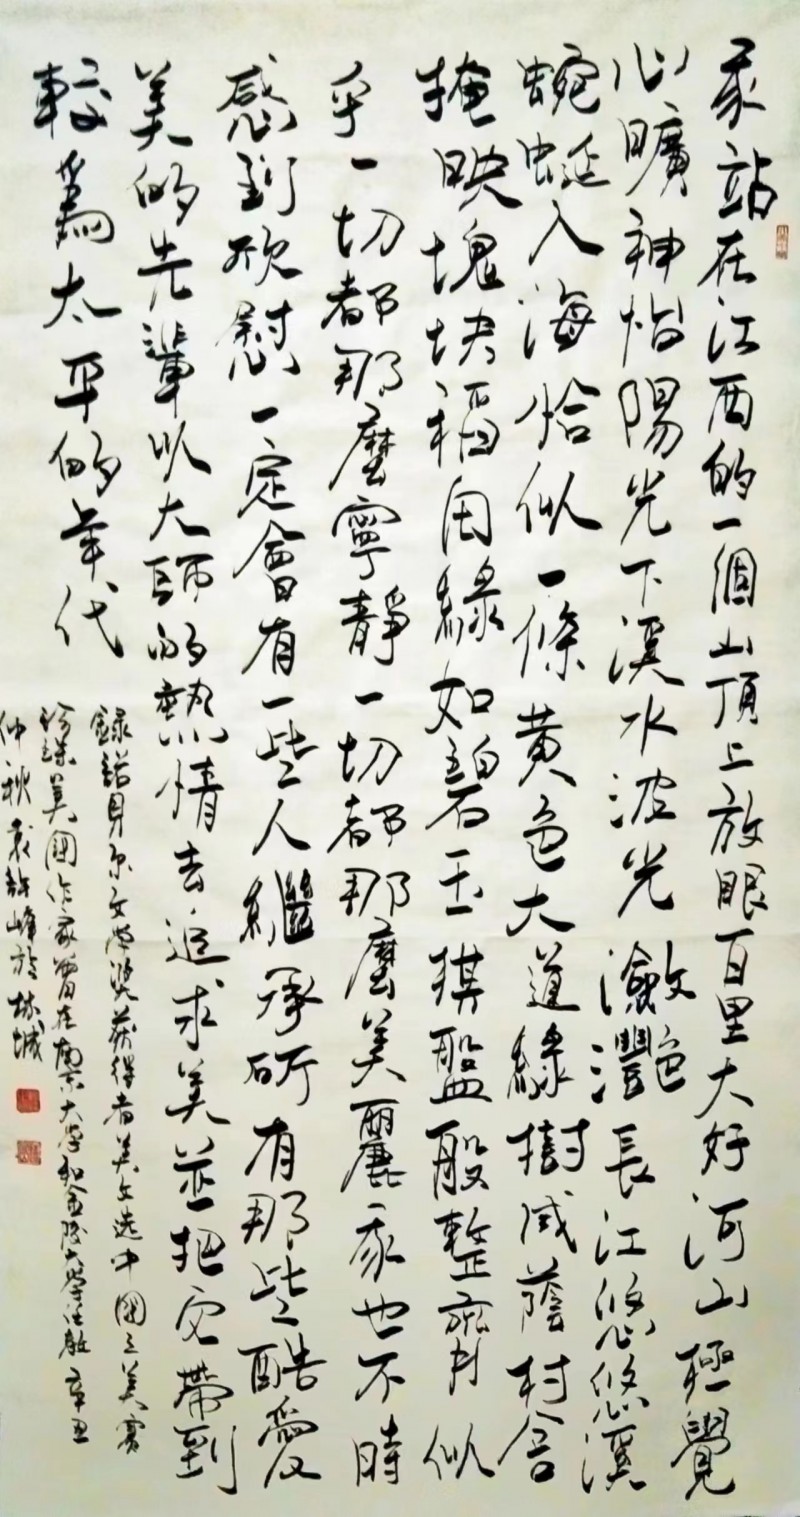 我站在江西的一個山頂上放眼百里大好河山極覺
心曠神怡陽光下溪水波光瀲灩長江悠悠溪
蜿蜒入海恰似一條黄色大道綠樹成蔭村舍
掩映塊塊稻田綠如碧玉棋盤般整齊似
乎一切都那麼寧靜一切都那麼美麗我也不時
感到欣慰一定會有一些人繼承所有那些酷愛
美的先輩以大師的熱情去追求美並把它帶到
較爲太平的年代
録諾貝尔文學奖获得者美文选中國之美賽
珍珠美國作家曾在南京大学和金陵大學任教辛丑
仲秋袁 峰於 城